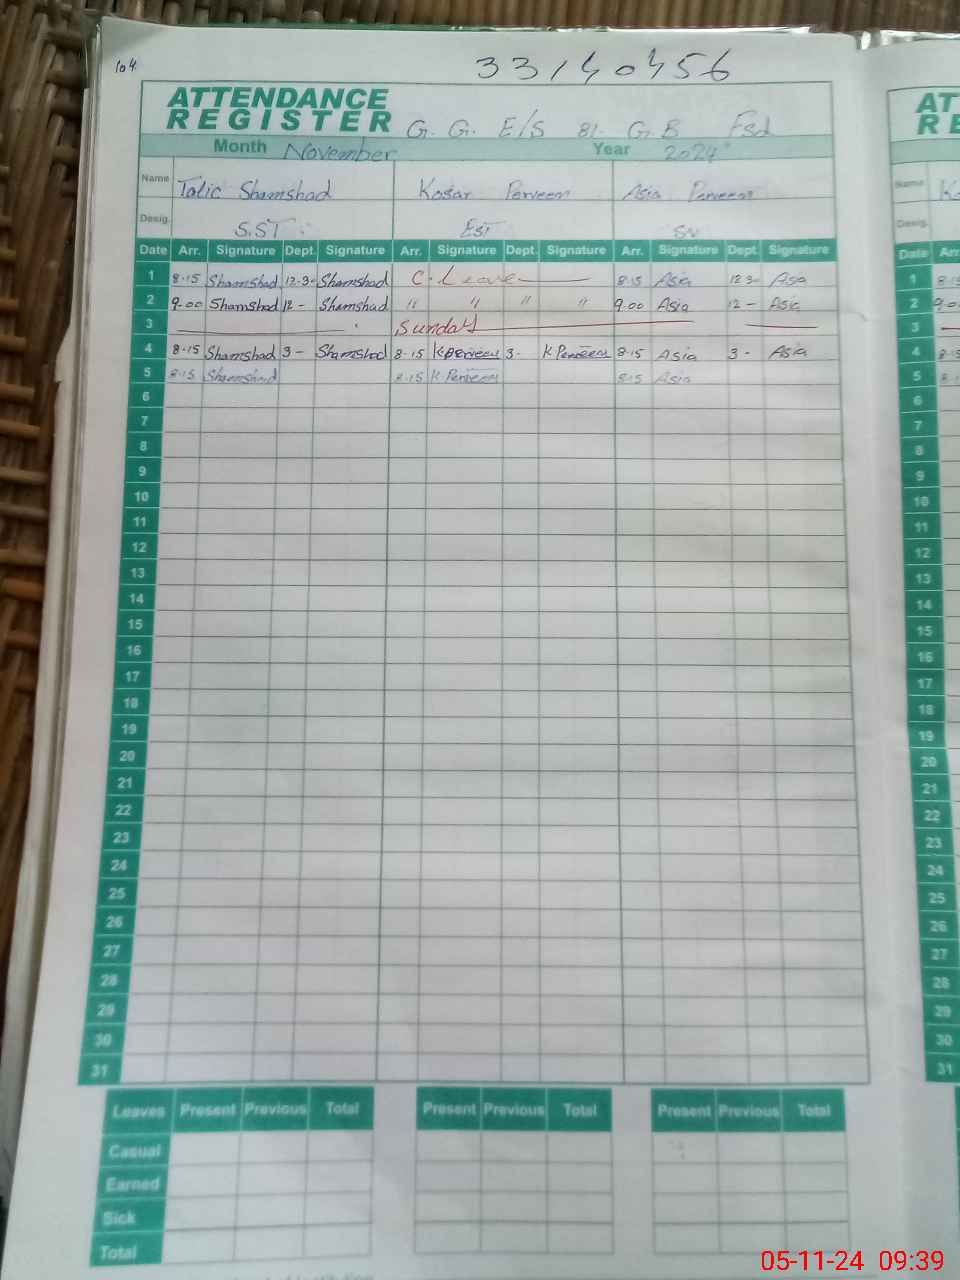 104
33140456
ATTENDANCE
REGISTER G. G. E/S 81- G.B Fsd
Month November Year 2024
Name Shamshad Kosar Perveen Asia Perveen
Desig. S.ST EST
Date Arr. Signature Dept. Signature Arr. Signature Dept. Signature Arr. Signature Dept. Signature
1 8.15 Shamshad 12-3- Shamshad C. Leave 8.15 Asia 12 3- Asia
2 9.00 Shamshad 12- Shamshad " " " " 9.00 Asia 12- Asia
3 Sunday
4 8.15 Shamshad 3- Shamshad 8.15 K Perveen 3- K Perveen 8.15 Asia 3- Asia
5 8.15 Shamshad 8.15 K Perveen 8.15 Asia
6
7
8
9
10
11
12
13
14
15
16
17
18
19
20
21
22
23
24
25
26
27
28
29
30
31
Leaves Present Previous Total Present Previous Total Present Previous Total
Casual
Earned
Sick
Total
05-11-24 09:39